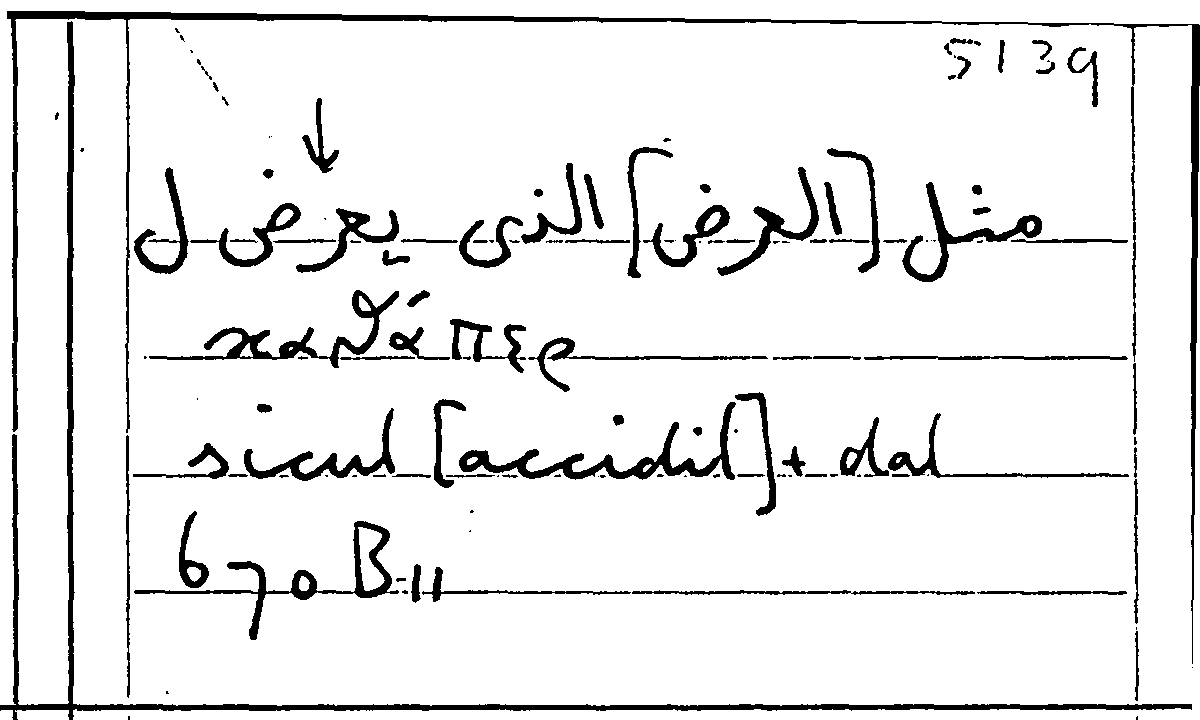 5139
↓
مثل [العرض] الذى يعرض ل
καθάπερ
sicut [accidit] + dat
670 B 11